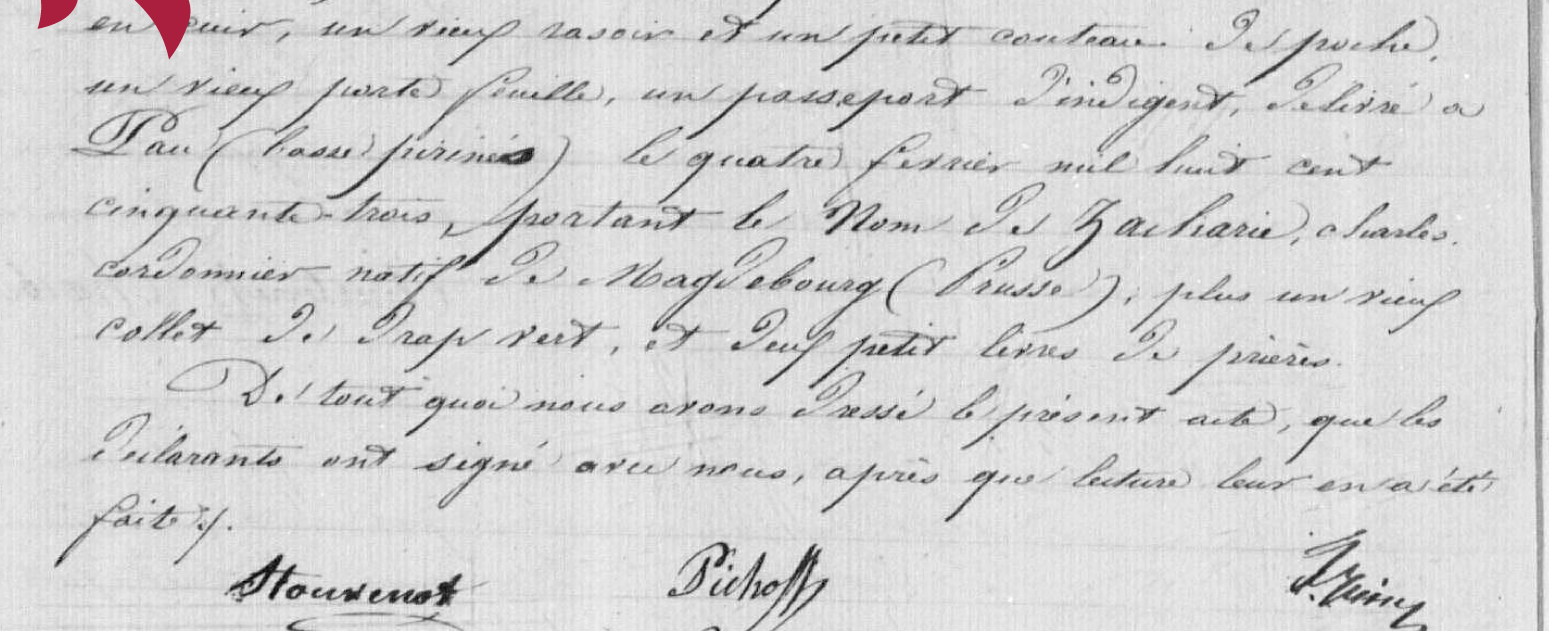 en cuir, un vieux rasoir et un petit couteau de poche,
un vieux porte feuille, un passeport d'indigent, delivré a
Pau (basse pirinés) le quatre fevrier mil huit cent
cinquante-trois, portant le Nom de Zacharie, charles.
cordonnier natif de Magdebourg (Prusse), plus un vieux
collet de drap vert, et deux petit livres de prières.
De tout quoi nous avons dressé le présent acte, que les
déclarants ont signé avec nous, après que lecture leur en a été
faite ./.
Stouvenot Pichoff